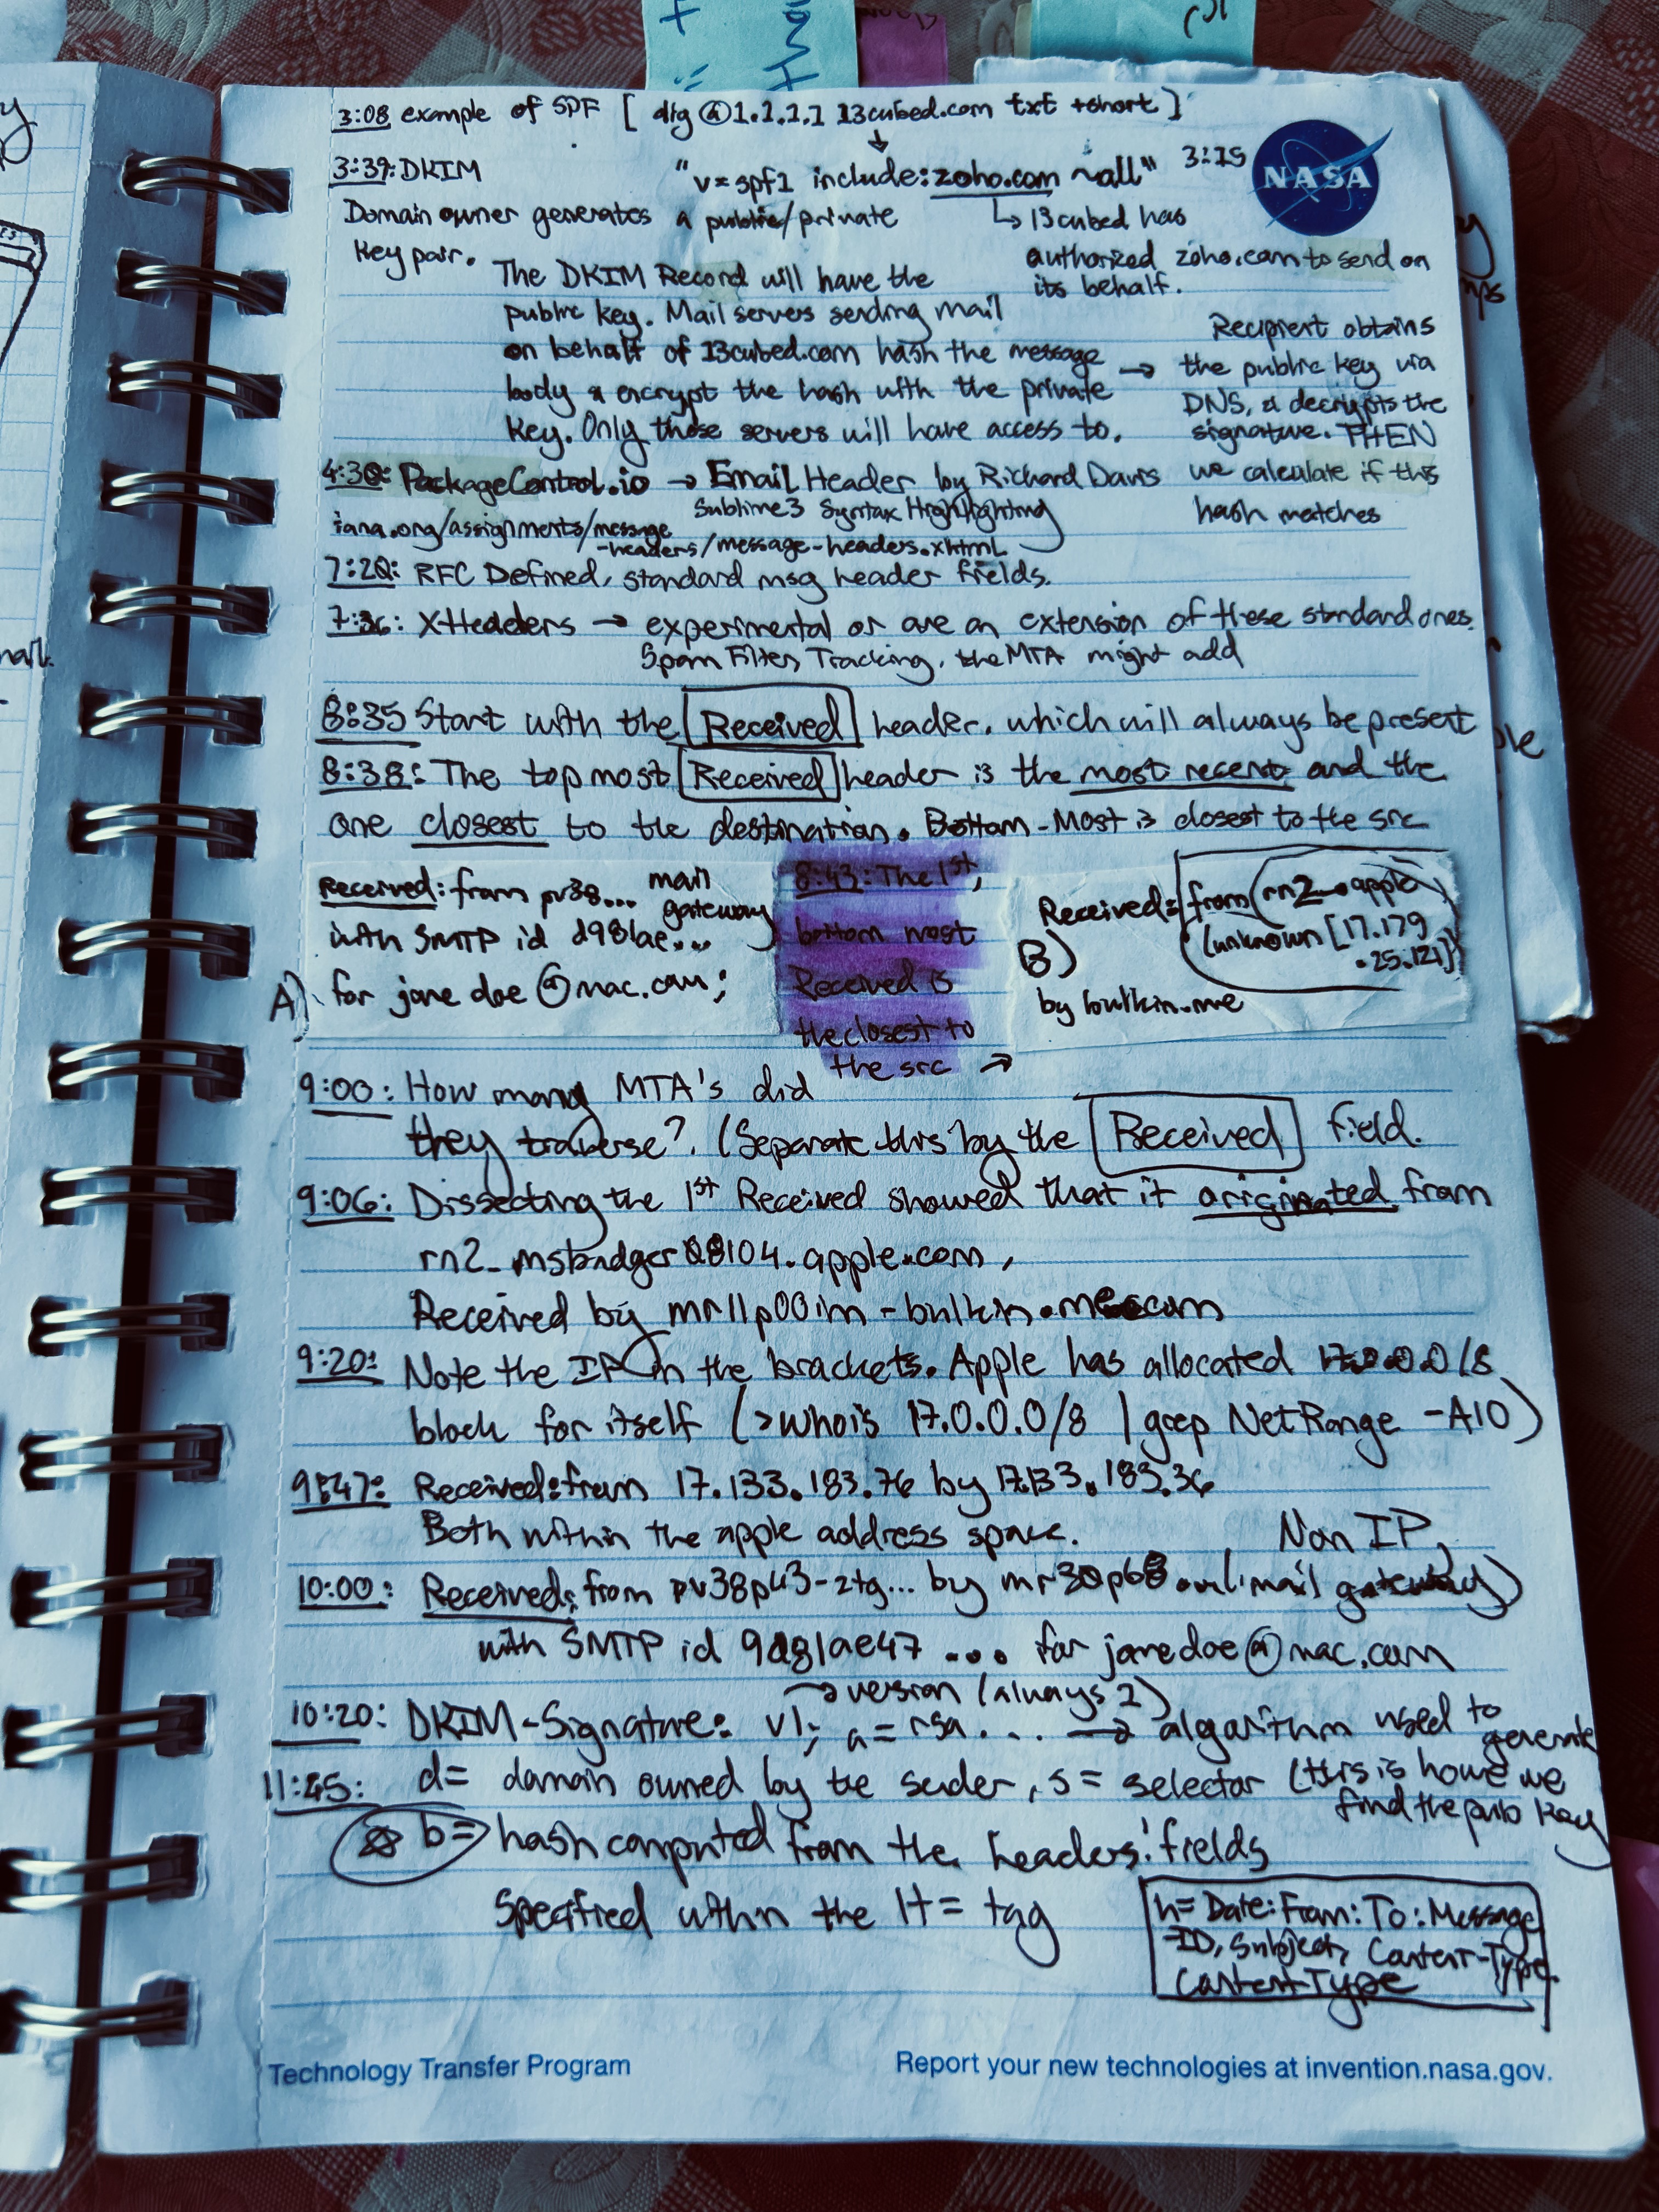 3:08 example of SPF [ dig @1.1.1.1 13cubed.com txt +short ]
"v=spf1 include:zoho.com ~all" 3:15
NASA
↳ 13cubed has
authorized zoho.com to send on
its behalf.
3:39: DKIM
Domain owner generates a public/private
key pair.
The DKIM Record will have the
public key. Mail servers sending mail
on behalf of 13cubed.com hash the message →
body & encrypt the hash with the private
key. Only those servers will have access to.
Recipient obtains
the public key via
DNS, & decrypts the
signature. THEN
we calculate if this
hash matches
4:30: PackageControl.io → Email Header by Richard Davis
Sublime3 Syntax Highlighting
iana.org/assignments/message
-headers/message-headers.xhtml
7:20: RFC Defined, standard msg header fields.
7:36: XHeaders → experimental or are an extension of these standard ones.
Spam Filter, Tracking, the MTA might add
8:35 Start with the Received header, which will always be present
8:38: The top most Received header is the most recent and the
one closest to the destination. Bottom-Most is closest to the src
Received: from pv38... mail
gateway
with SMTP id d981ae...
A) for jane doe @mac.com;
8:43: The 1st,
bottom most
Received is
the closest to
the src →
Received: from (rn2_.apple
(unknown [17.179
.25.121])
B)
by bulkin.me
9:00: How many MTA's did
they traverse? (Separate this by the Received field.
9:06: Dissecting the 1st Received showed that it originated from
rn2_msbadger08104.apple.com,
Received by mr11p00im-bulkin.me.com
9:20: Note the IP in the brackets. Apple has allocated 17.0.0.0/8
block for itself (>whois 17.0.0.0/8 | grep NetRange -A10)
9:47: Received: from 17.133.183.76 by 17.133.183.36
Both within the apple address space.
Non IP,
10:00: Received: from pv38p43-ztg... by mr30p68 mail gateway)
with SMTP id 9d81ae47 ... for janedoe@mac.com
→ version (always 1)
10:20: DKIM-Signature: v1; a=rsa... → algorithm used to
generate
11:45: d= domain owned by the sender, s= selector (this is how we
find the pub key
☆ b= hash computed from the headers' fields
Specified within the H= tag
h= Date:From:To:Message
-ID, Subject, Content-Type,
Content-Type
Technology Transfer Program
Report your new technologies at invention.nasa.gov.